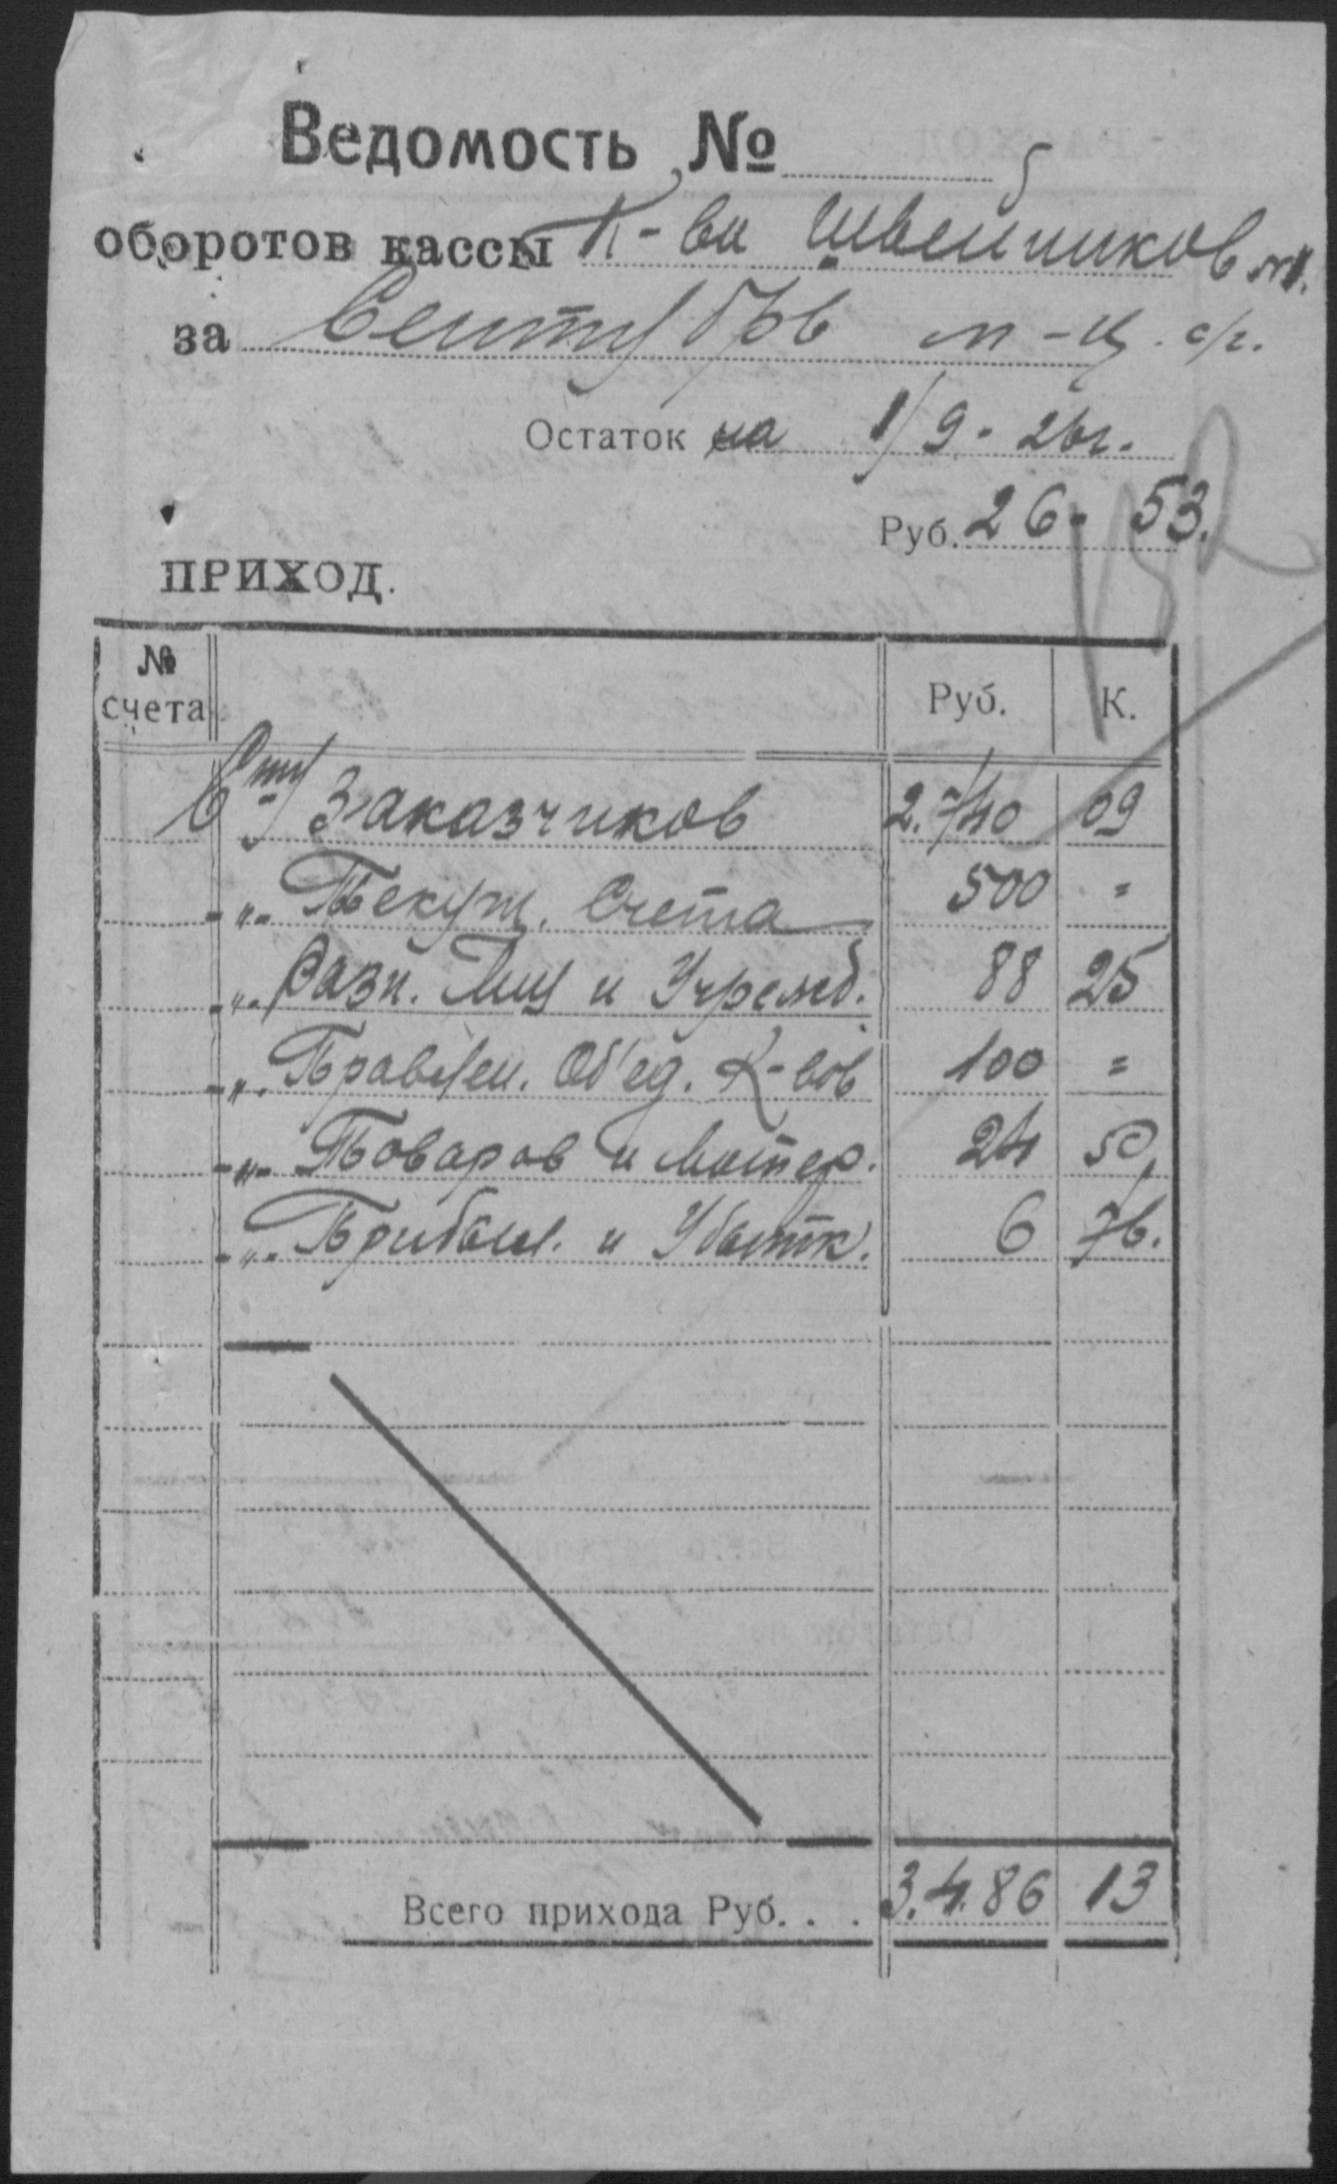 Ведомость №
оборотов кассы К-ва Швейников №1.
за Сентябрь м-ц. с/г.
Остаток на 1/9 - 26г.
Руб. 26 - 53.
ПРИХОД.
№ счета Руб. К.
Заказчиков 2.740 09
-"- Текущ. Счета 500 =
-"- Разн. Лиц и Учрежд. 88 25
-"- Правлен. Об'ед. К-вов 100 =
-"- Товаров и Матер. 24 50
-"- Прибыл. и Убытк. 6 76.
Всего прихода Руб. . . 3.486 13